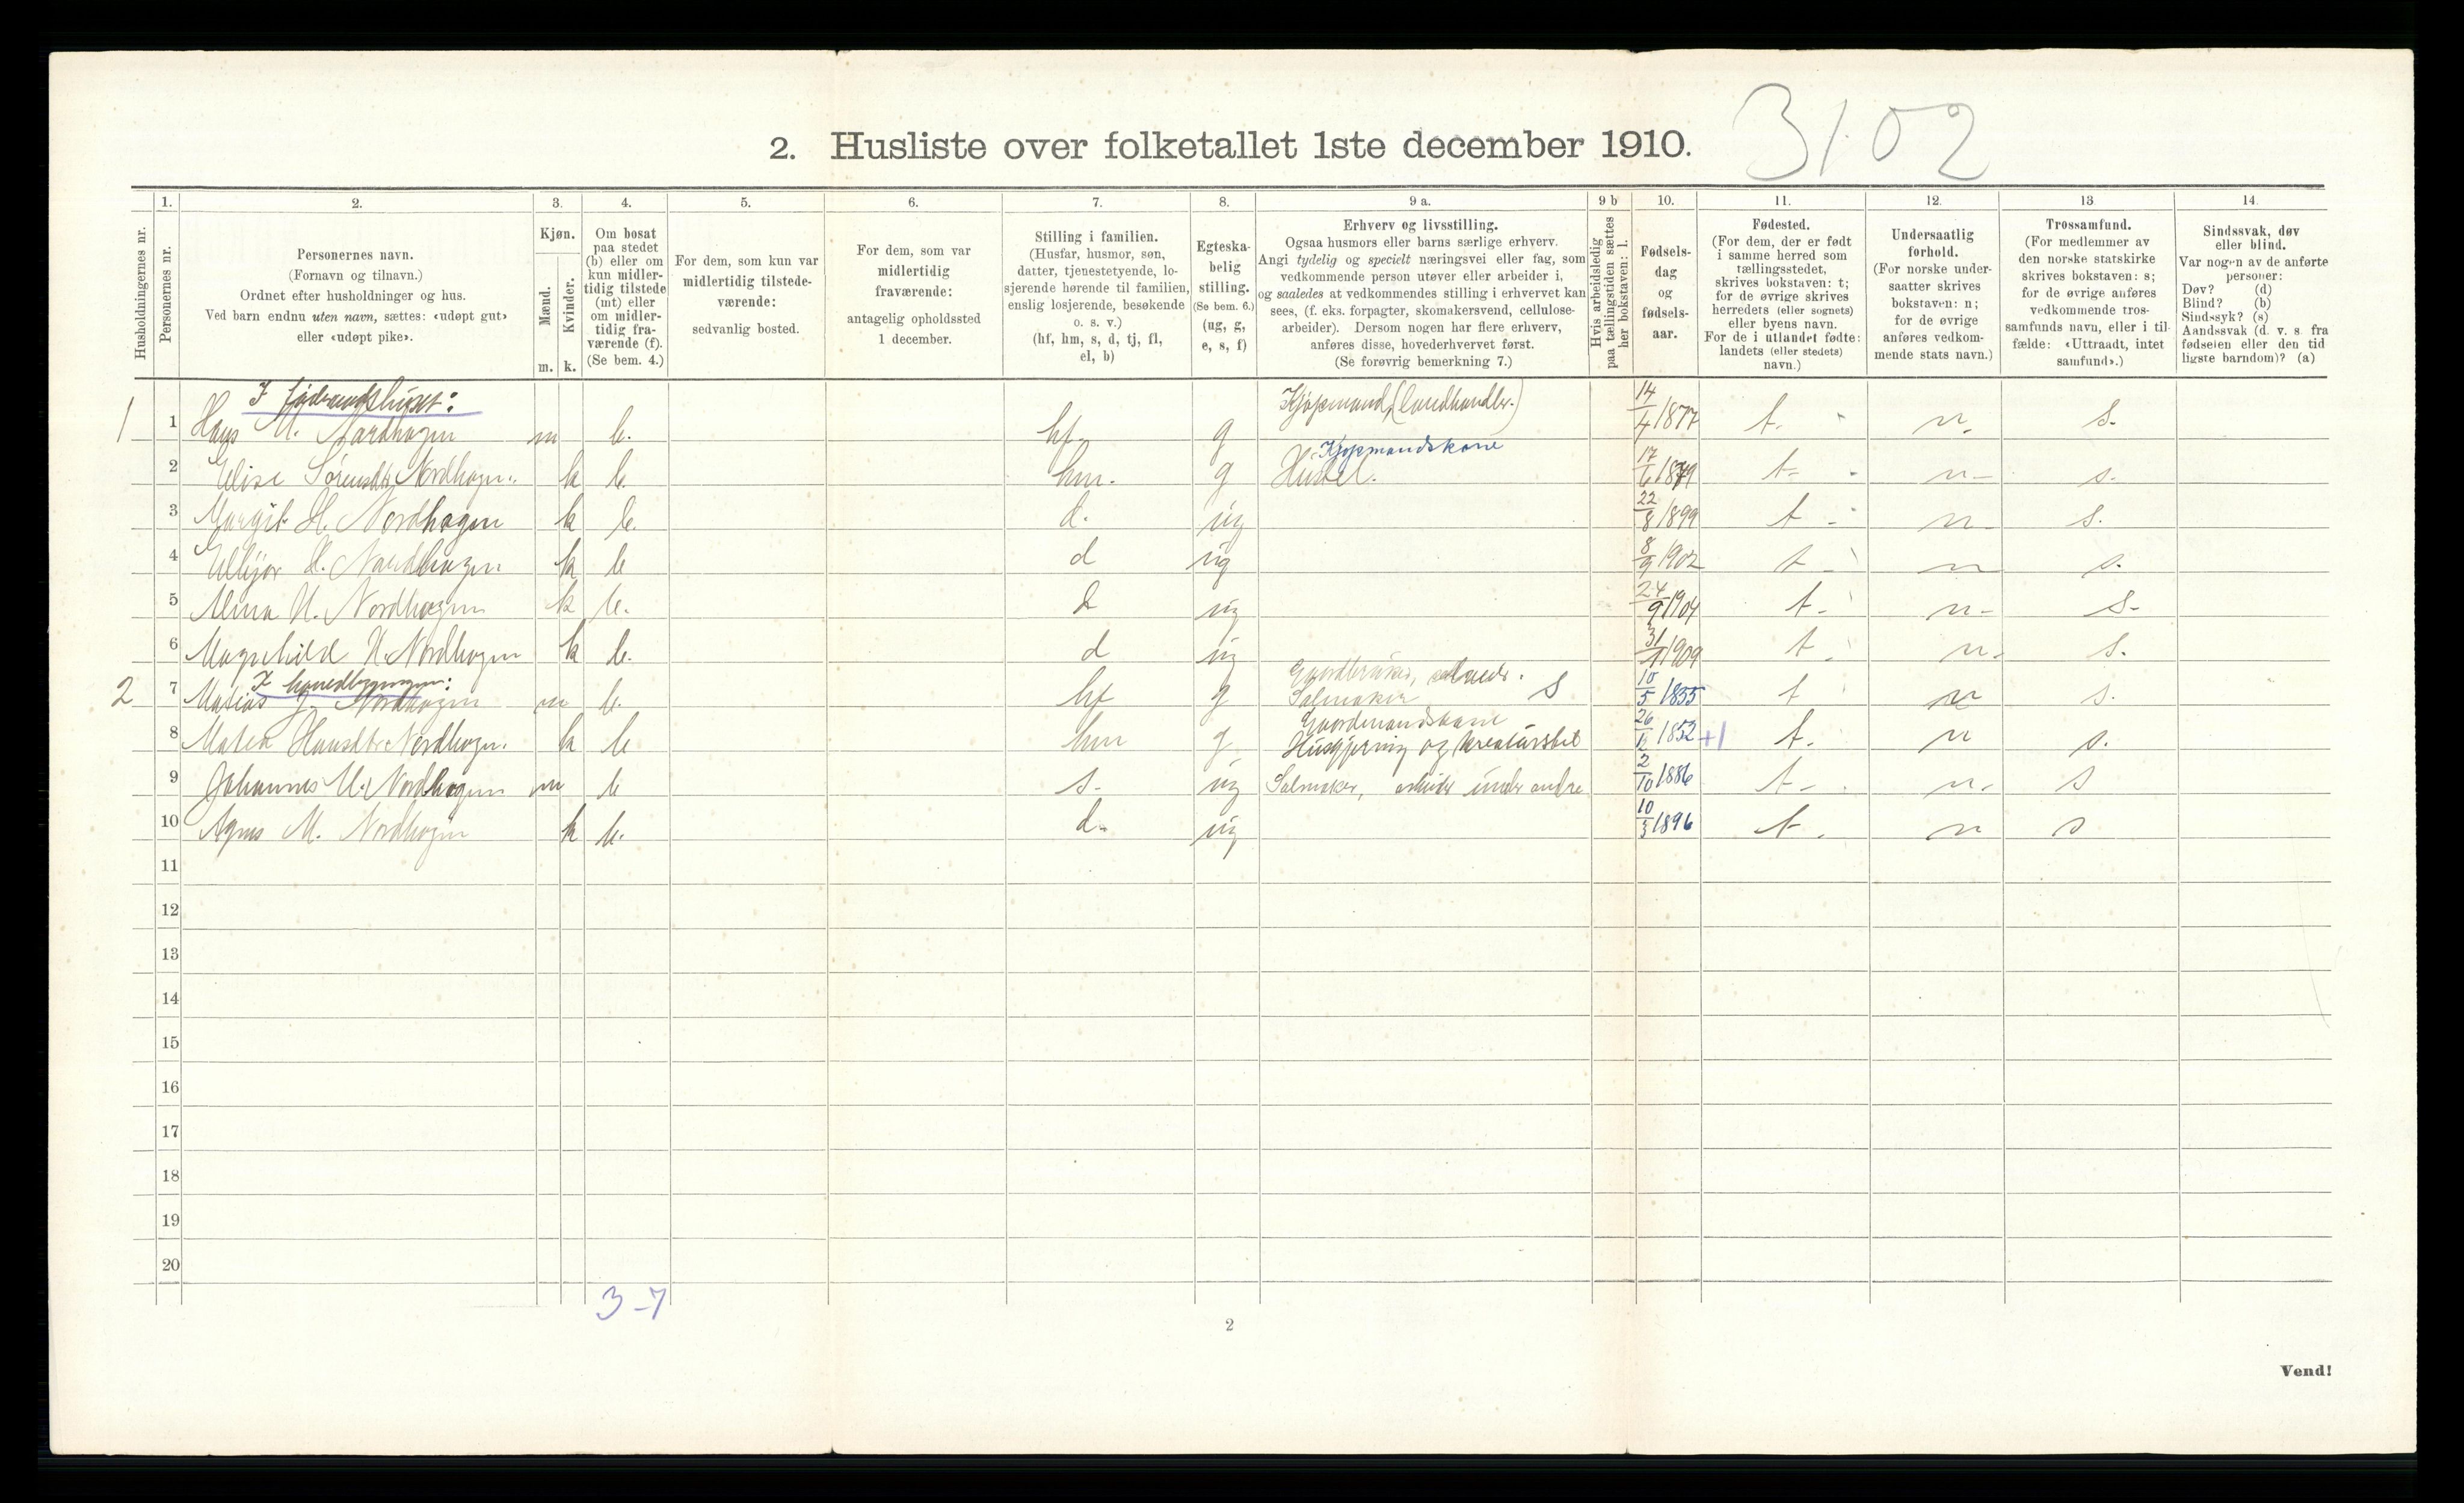 3102
2. Husliste over folketallet 1ste december 1910.
Husholdningernes nr.
1.
Personernes nr.
2.
Personernes navn.
(Fornavn og tilnavn.)
Ordnet efter husholdninger og hus.
Ved barn endnu uten navn, sættes: «udøpt gut»
eller «udøpt pike».
3.
Kjøn.
Mænd.
Kvinder.
m. k.
4.
Om bosat
paa stedet
(b) eller om
kun midler-
tidig tilstede
(mt) eller
om midler-
tidig fra-
værende (f).
(Se bem. 4.)
5.
For dem, som kun var
midlertidig tilstede-
værende:
sedvanlig bosted.
6.
For dem, som var
midlertidig
fraværende:
antagelig opholdssted
1 december.
7.
Stilling i familien.
(Husfar, husmor, søn,
datter, tjenestetyende, lo-
sjerende hørende til familien,
enslig losjerende, besøkende
o. s. v.)
(hf, hm, s, d, tj, fl,
el, b)
8.
Egteska-
belig
stilling.
(Se bem. 6.)
(ug, g,
e, s, f)
9 a.
Erhverv og livsstilling.
Ogsaa husmors eller barns særlige erhverv.
Angi tydelig og specielt næringsvei eller fag, som
vedkommende person utøver eller arbeider i,
og saaledes at vedkommendes stilling i erhvervet kan
sees, (f. eks. forpagter, skomakersvend, cellulose-
arbeider). Dersom nogen har flere erhverv,
anføres disse, hovederhvervet først.
(Se forøvrig bemerkning 7.)
9 b
Hvis arbeidsledig
paa tællingstiden sættes
her bokstaven: l.
10.
Fødsels-
dag
og
fødsels-
aar.
11.
Fødested.
(For dem, der er født
i samme herred som
tællingsstedet,
skrives bokstaven: t;
for de øvrige skrives
herredets (eller sognets)
eller byens navn.
For de i utlandet fødte:
landets (eller stedets)
navn.)
12.
Undersaatlig
forhold.
(For norske under-
saatter skrives
bokstaven: n;
for de øvrige
anføres vedkom-
mende stats navn.)
13
Trossamfund.
(For medlemmer av
den norske statskirke
skrives bokstaven: s;
for de øvrige anføres
vedkommende tros-
samfunds navn, eller i til-
fælde: «Uttraadt, intet
samfund».)
14.
Sindssvak, døv
eller blind.
Var nogen av de anførte
personer:
Døv? (d)
Blind? (b)
Sindssyk? (s)
Aandssvak (d. v. s. fra
fødselen eller den tid-
ligste barndom)? (a)
1 1 Hans M. Nordhagen m b. hf. g Kjøpmand, (landhandler.) 14/4 1877 t. n. s.
Kjøpmandskone
2 Elise Sørensdtr Nordhagen. k b. hm. g Husstel. 17/6 1879 t- n- s.
3 Margit H. Nordhagen k b. d. ug 22/8 1899 t- n- s.
4 H. Nordhagen k b d ug 8/9 1902 t- n s.
5 Alma H. Nordhagen k b. d ug 24/9 1904 t- n- s-
6 Magnhild H. Nordhagen k b. d ug 31/1 1909 t. n. s.
I hovedbygningen:
Gaardbruker,
2 7 Matias J. Nordhagen m b. hf g Salmaker S 10/5 1855 t n s.
Gaardmandskone
8 Matea Hansdtr Nordhagen. k b hm g Husgjerning og kreaturstel 26/12 1852 +1 t. n s.
9 Johannes M. Nordhagen m b s. ug Salmaker, arbeider under andre 2/10 1886 t- n. s
10 Agnes M. Nordhagen k b. d. ug 10/3 1896 t. n s
11
12
13
14
15
16
17
18
19
20
3-7
2
Vend!